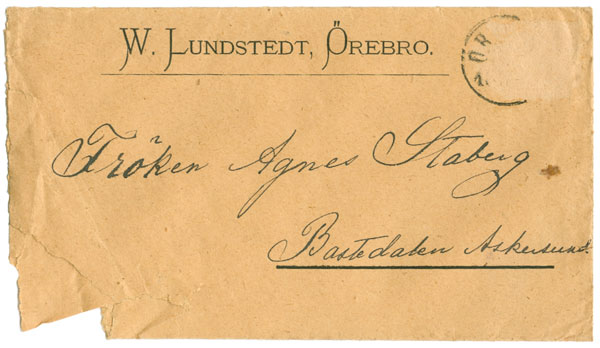 W. LUNDSTEDT, ÖREBRO.
ÖR
Fröken Agnes Staberg
Bastedalen Askersund.